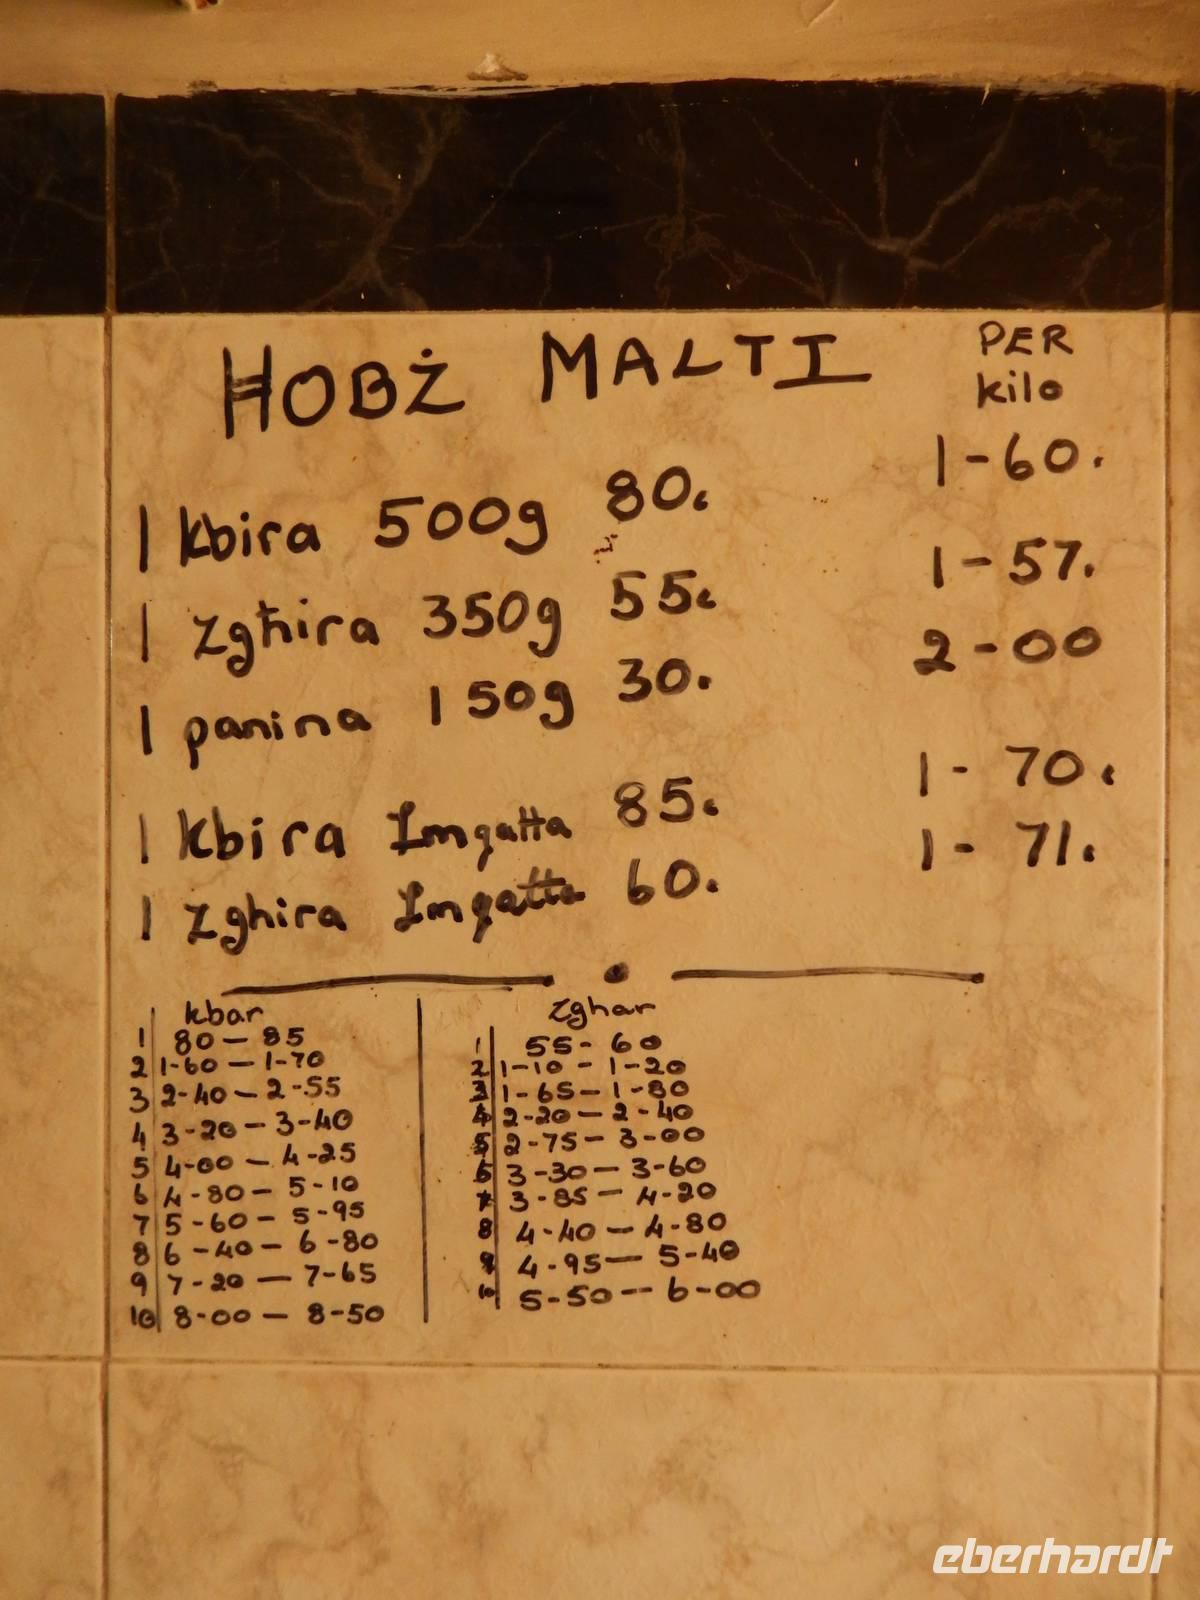 ĦOBŻ MALTI PER kilo
1 kbira 500g 80c 1-60.
1 żgħira 350g 55c 1-57.
1 panina 150g 30. 2-00
1 kbira Imqatta 85c 1-70.
1 zghira Imqatta 60. 1-71.
kbar
1 80-85
2 1-60-1-70
3 2-40-2-55
4 3-20-3-40
5 4-00-4-25
6 4-80-5-10
7 5-60-5-95
8 6-40-6-80
9 7-20-7-65
10 8-00-8-50
zghar
1 55-60
2 1-10-1-20
3 1-65-1-80
4 2-20-2-40
5 2-75-3-00
6 3-30-3-60
7 3-85-4-20
8 4-40-4-80
9 4-95-5-40
10 5-50-6-00
eberhardt